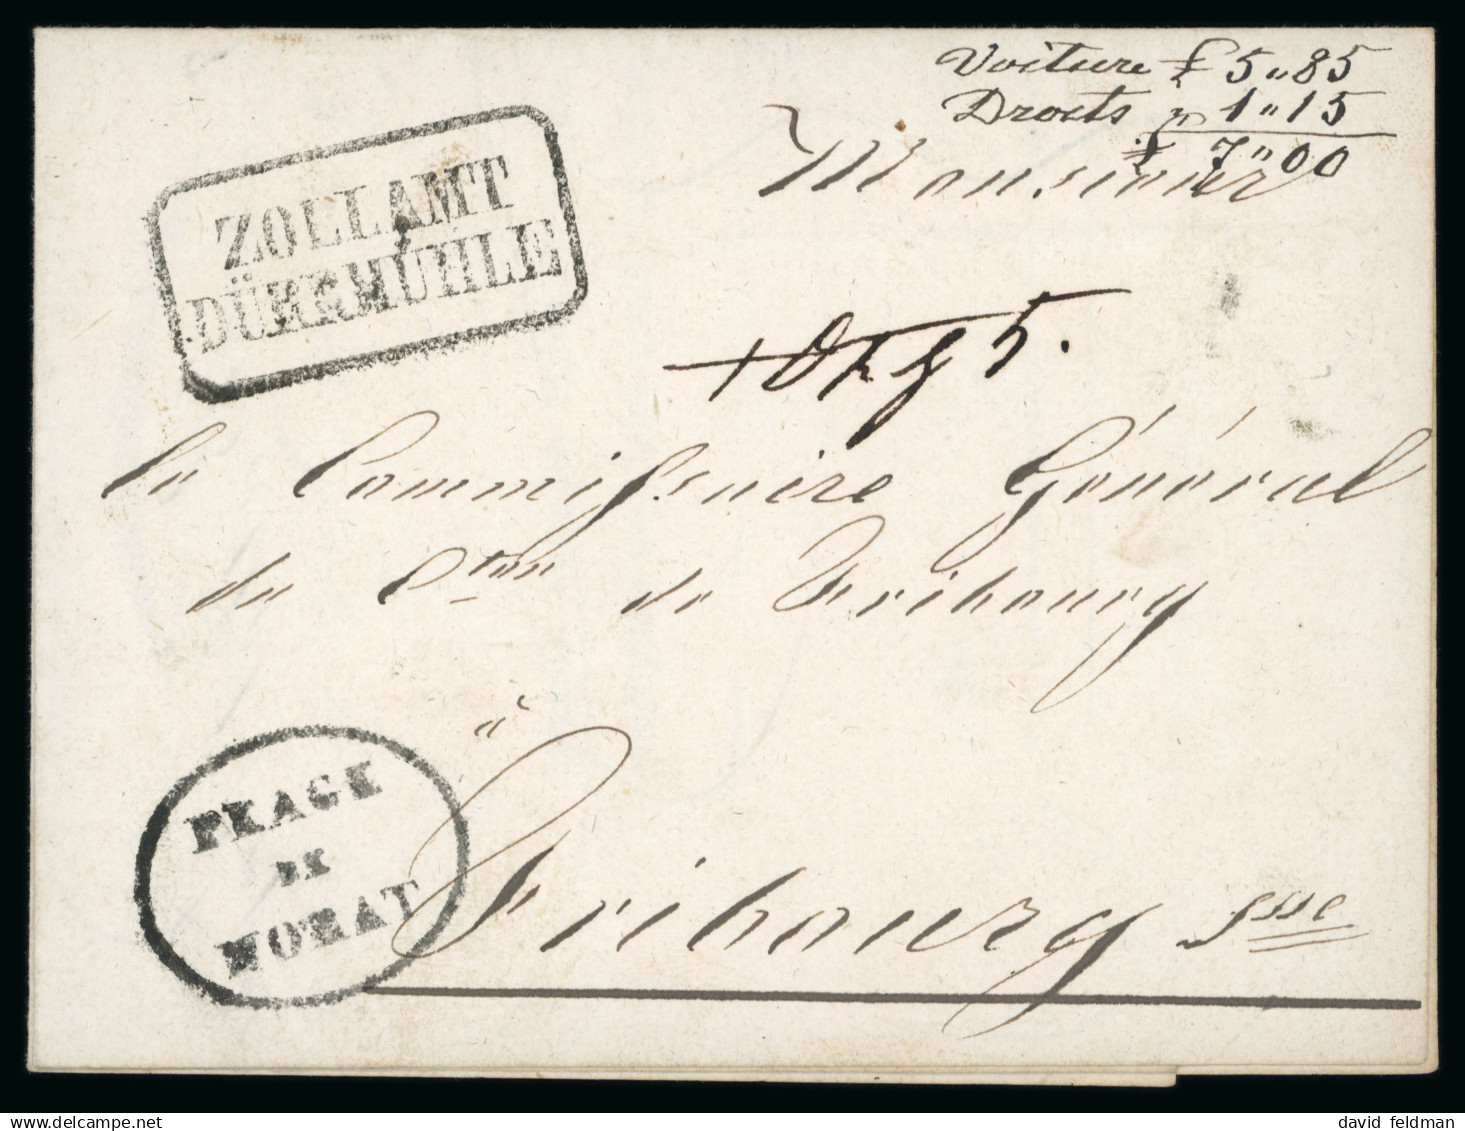 Voiture £ 5 " 85
Droits " 1 " 15
£ 7 " 00
Monsieur
ZOLLAMT
DÜRRMÜHLE
le Commissaire Général
du Cton de Fribourg
à
Fribourg Sse
PEAGE
DE
MORAT
david feldman